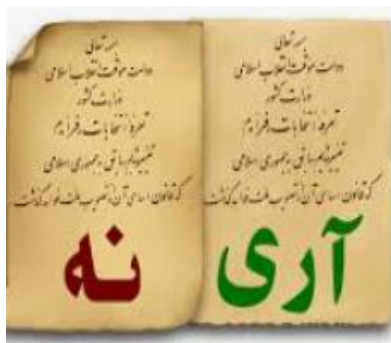 بسمه تعالی
دولت موقت انقلاب اسلامی
وزارت کشور
تعرفه انتخابات رفراندم
تغییر رژیم سابق به جمهوری اسلامی
که قانون اساسی آن از تصویب ملت خواهد گذشت
آری
بسمه تعالی
دولت موقت انقلاب اسلامی
وزارت کشور
تعرفه انتخابات رفراندم
تغییر رژیم سابق به جمهوری اسلامی
که قانون اساسی آن از تصویب ملت خواهد گذشت
نه